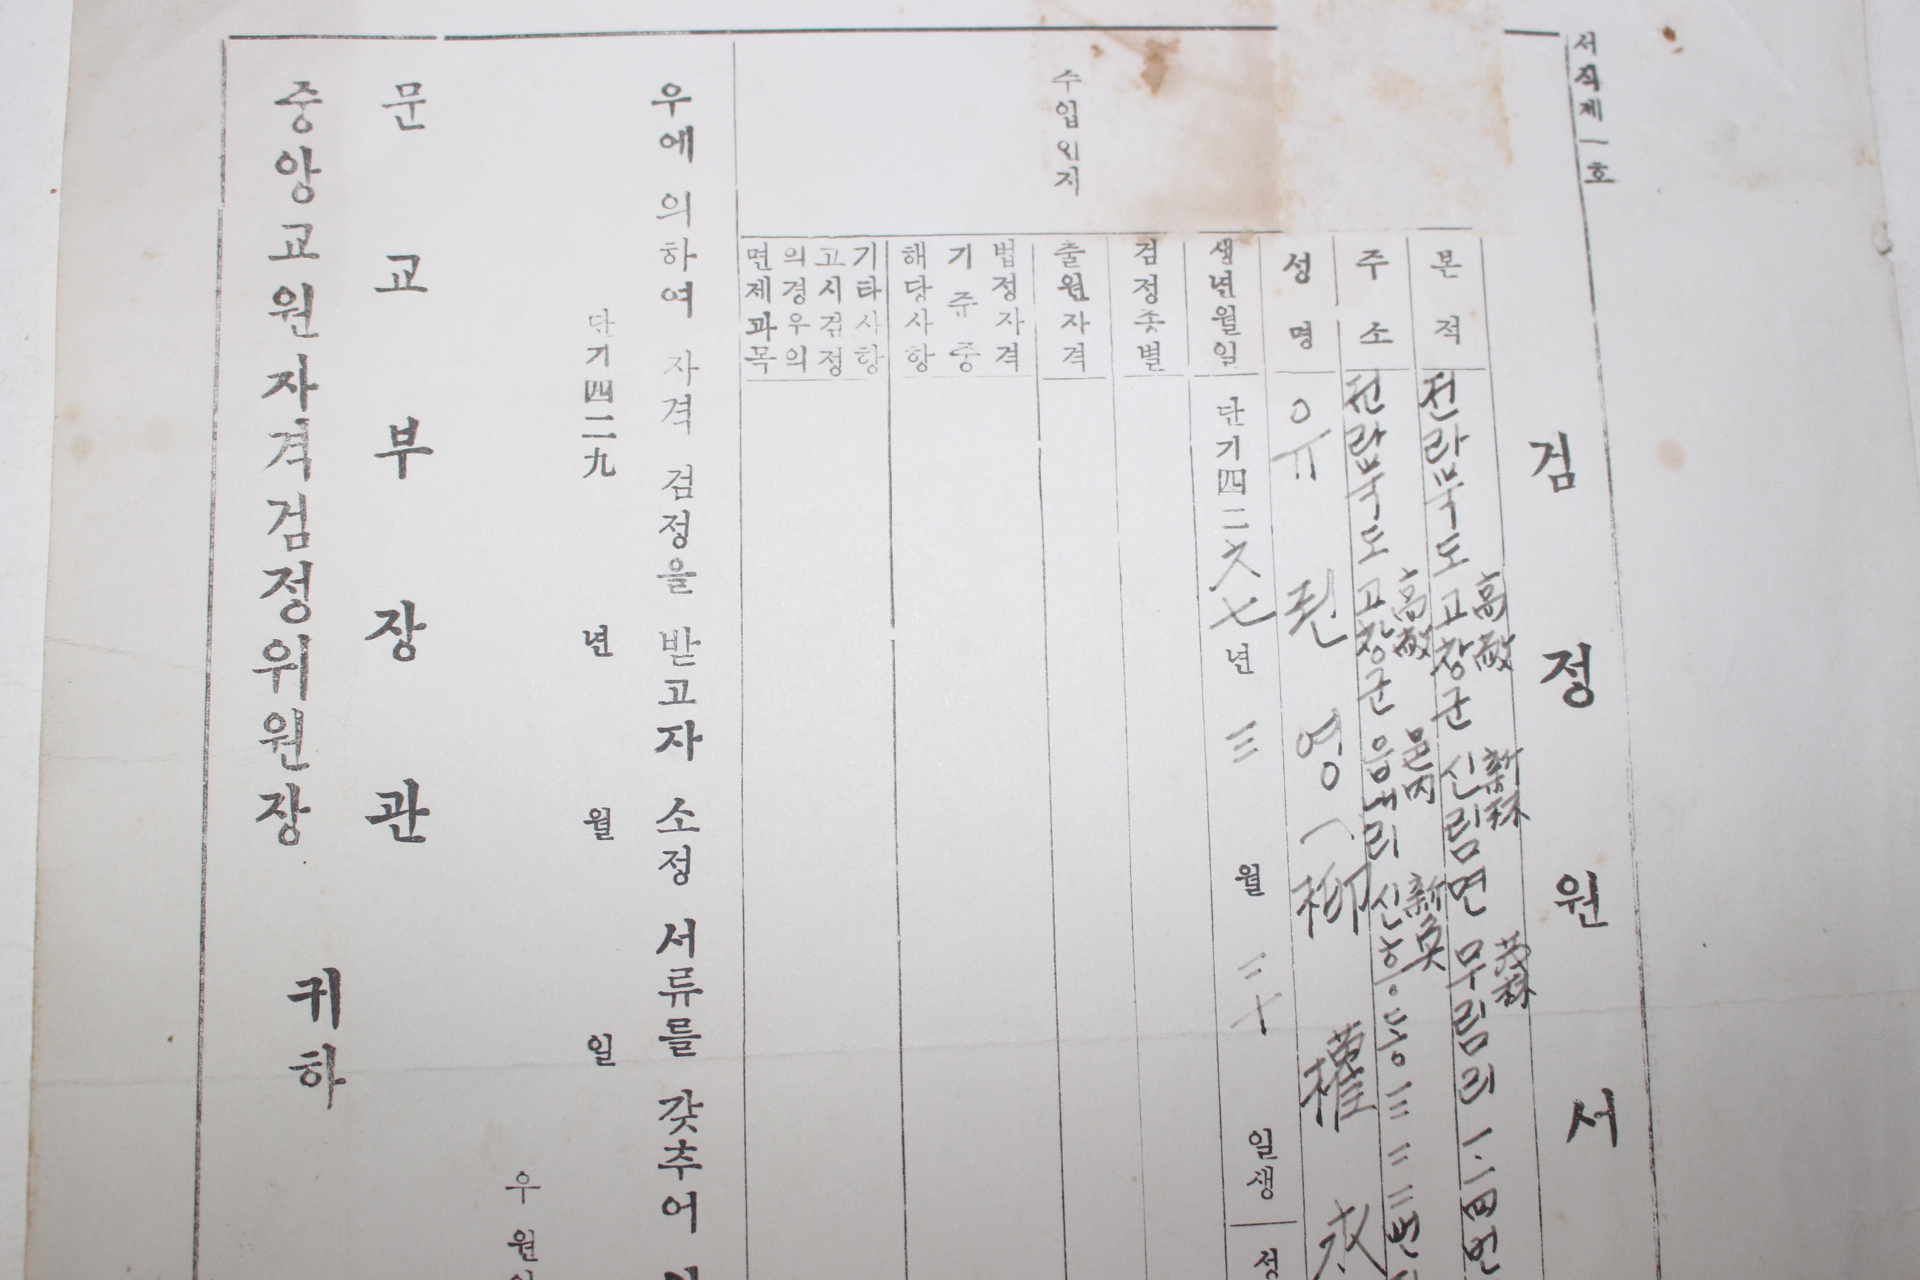 서식제一호
검정원서
본적
전라북도 고창군 신림면 무림리 一二四번
高敞 新林 茂林
주소
전라북도 고창군 읍내리 신흥동 三三三번
高敞 邑内
성명
유 권 영 柳 權 永
생년월일
단기四二六七년 三월 二十일생
성
검정종별
출원자격
법정자격
기준중
해당사항
기타사항
고시검정
의경우의
면제과목
수입인지
우에 의하여 자격 검정을 받고자 소정 서류를 갖추어
단기四二九 년 월 일
우 원
문교부장관
중앙교원자격검정위원장 귀하